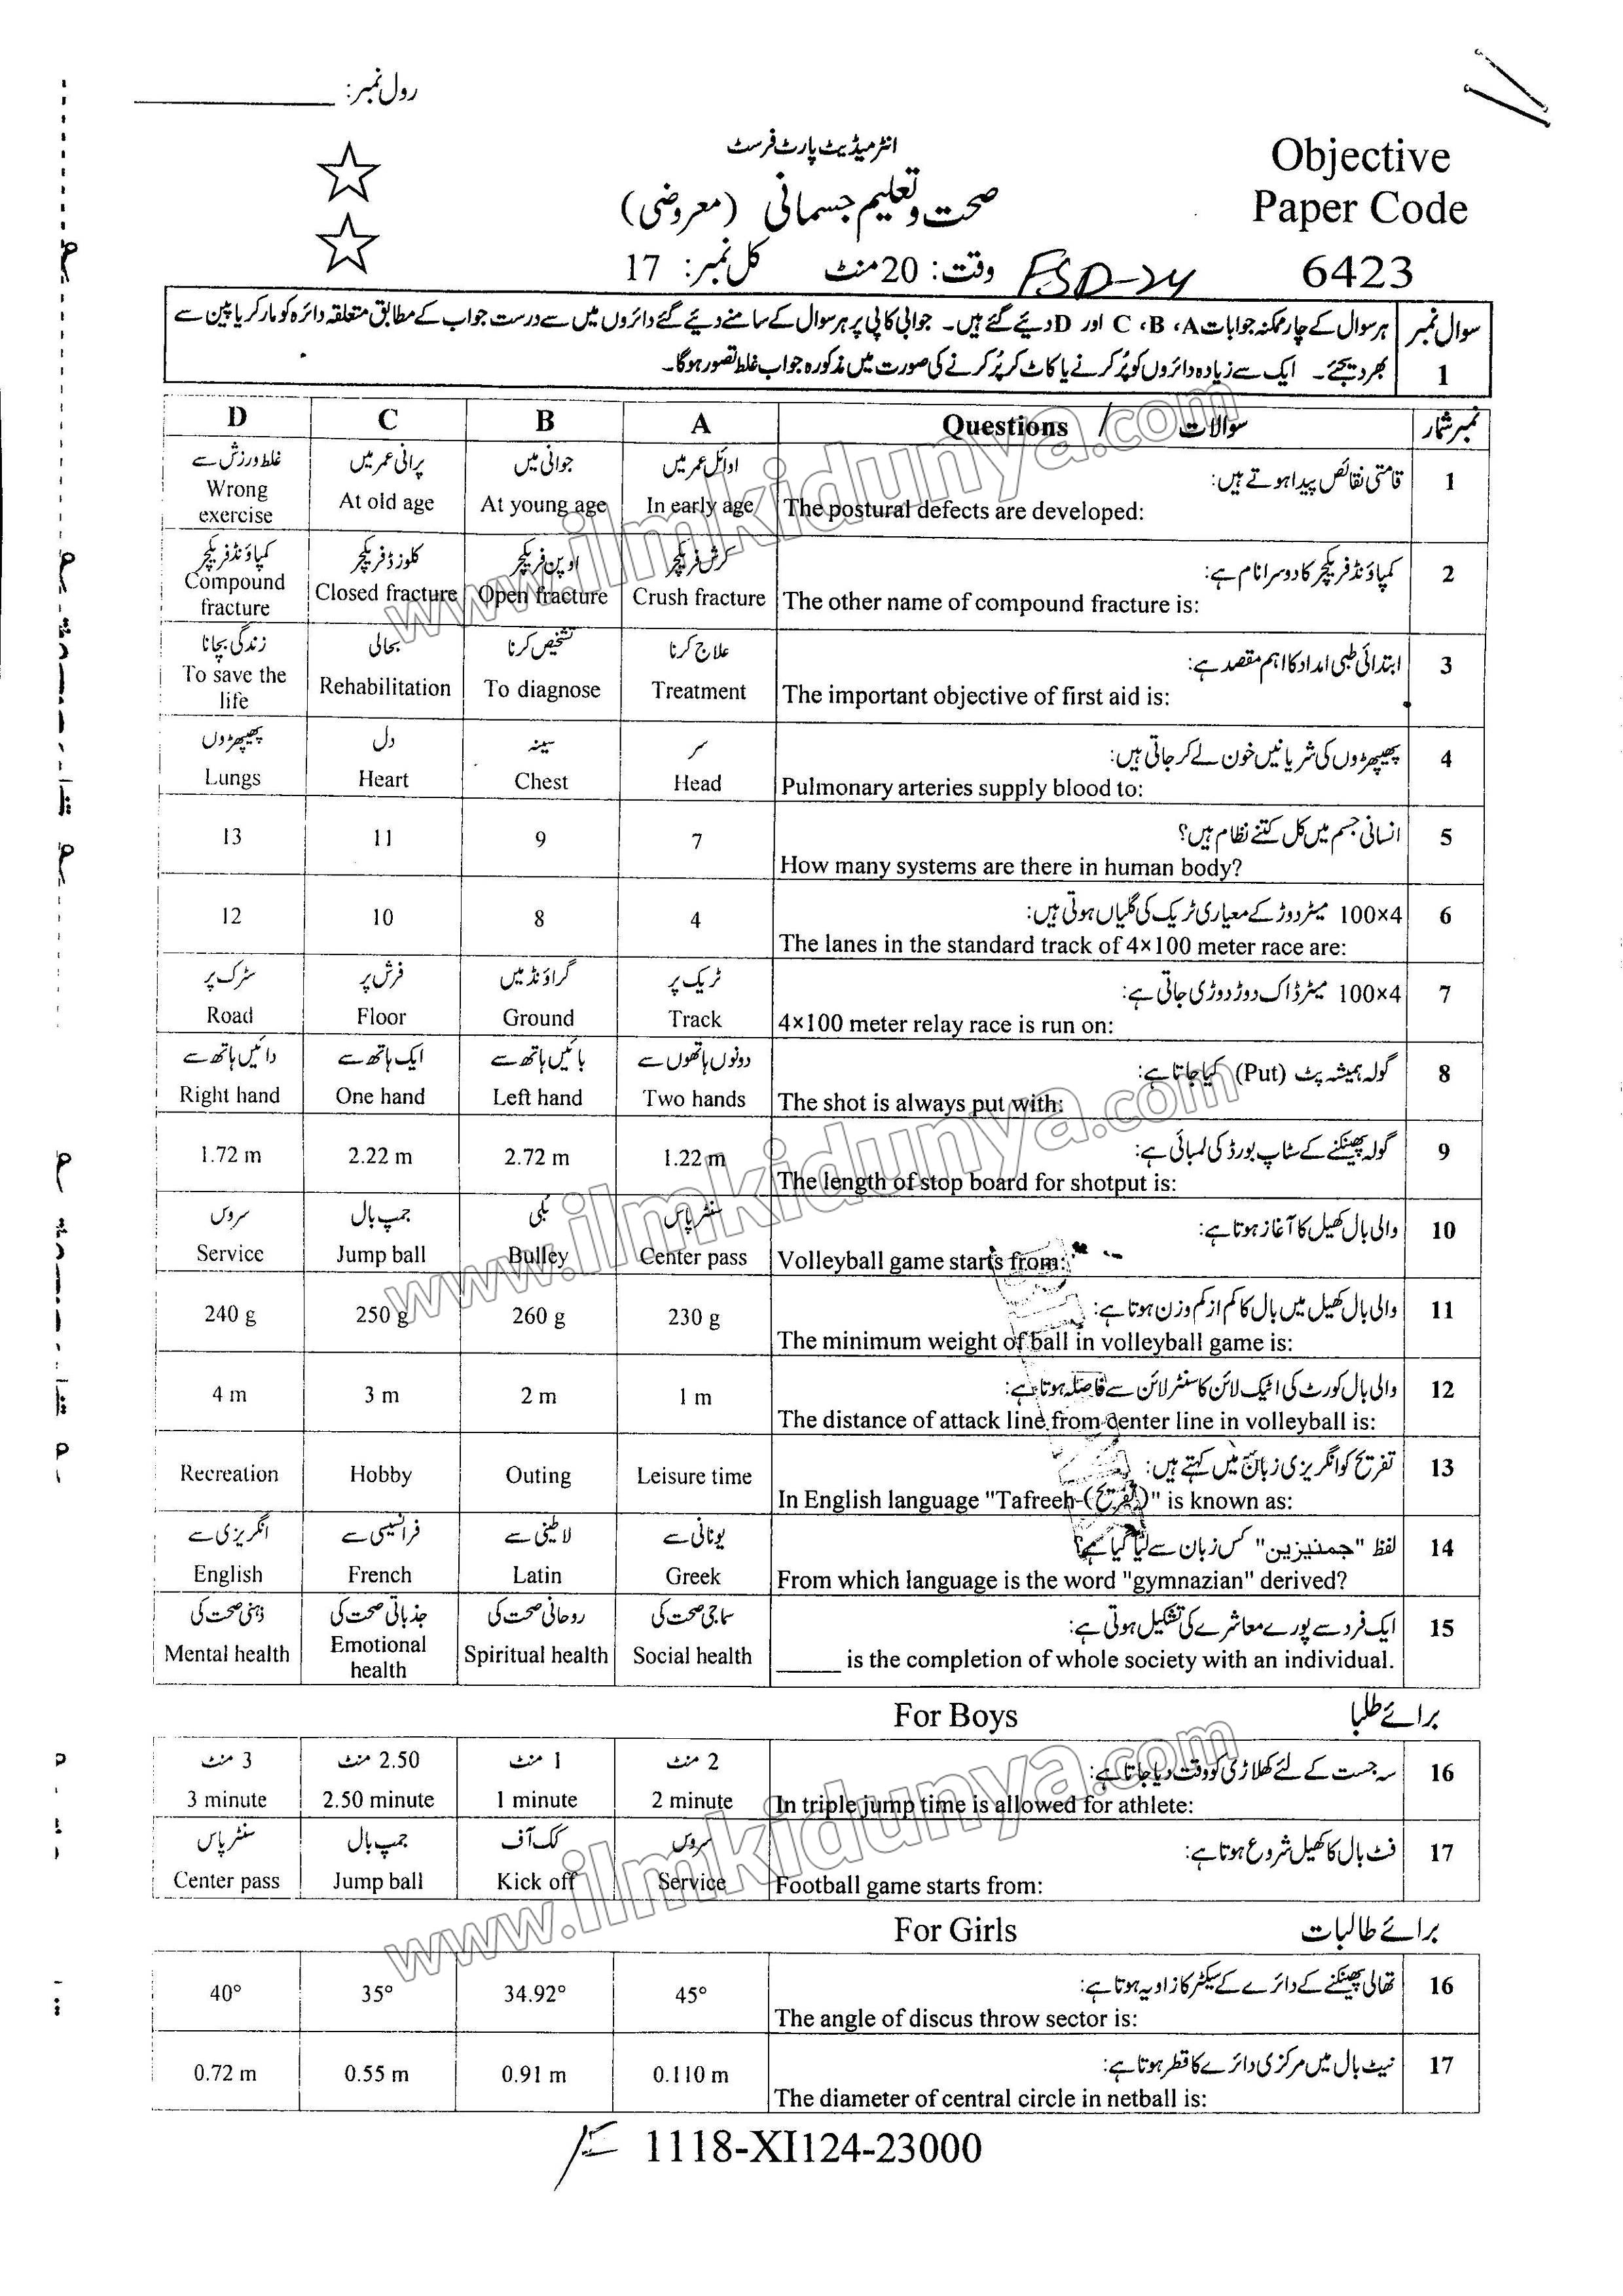 رول نمبر: ____________
انٹرمیڈیٹ پارٹ فرسٹ
صحت و تعلیم جسمانی (معروضی)
وقت: 20 منٹ کل نمبر: 17
FSD-24
Objective
Paper Code
6423
سوال نمبر 1
ہر سوال کے چار ممکنہ جوابات A، B، C اور D دیئے گئے ہیں۔ جوابی کاپی پر ہر سوال کے سامنے دیئے گئے دائروں میں سے درست جواب کے مطابق متعلقہ دائرہ کو مارکر یا پین سے
بھر دیجئے۔ ایک سے زیادہ دائروں کو پُر کرنے یا کاٹ کر پُر کرنے کی صورت میں مذکورہ جواب غلط تصور ہوگا۔
D C B A Questions / سوالات نمبر شمار
1 قامتی نقائص پیدا ہوتے ہیں:
The postural defects are developed:
اوائل عمر میں جوانی میں پرانی عمر میں غلط ورزش سے
In early age At young age At old age Wrong exercise
2 کمپاؤنڈ فریکچر کا دوسرا نام ہے:
The other name of compound fracture is:
کرش فریکچر اوپن فریکچر کلوزڈ فریکچر کمپاؤنڈ فریکچر
Crush fracture Open fracture Closed fracture Compound fracture
3 ابتدائی طبی امداد کا اہم مقصد ہے:
The important objective of first aid is:
علاج کرنا تشخیص کرنا بحالی زندگی بچانا
Treatment To diagnose Rehabilitation To save the life
4 پھیپھڑوں کی شریانیں خون لے کر جاتی ہیں:
Pulmonary arteries supply blood to:
سر سینہ دل پھیپھڑوں
Head Chest Heart Lungs
5 انسانی جسم میں کل کتنے نظام ہیں؟
How many systems are there in human body?
7 9 11 13
6 100×4 میٹر دوڑ کے معیاری ٹریک کی گلیاں ہوتی ہیں:
The lanes in the standard track of 4×100 meter race are:
4 8 10 12
7 100×4 میٹر ڈاک دوڑ دوڑی جاتی ہے:
4×100 meter relay race is run on:
ٹریک پر گراؤنڈ میں فرش پر سڑک پر
Track Ground Floor Road
8 گولہ ہمیشہ پٹ (Put) کیا جاتا ہے:
The shot is always put with:
دونوں ہاتھوں سے بائیں ہاتھ سے ایک ہاتھ سے دائیں ہاتھ سے
Two hands Left hand One hand Right hand
9 گولہ پھینکنے کے سٹاپ بورڈ کی لمبائی ہے:
The length of stop board for shotput is:
1.22 m 2.72 m 2.22 m 1.72 m
10 والی بال کھیل کا آغاز ہوتا ہے:
Volleyball game starts from:
سنٹر پاس بُلی جمپ بال سروس
Center pass Bulley Jump ball Service
11 والی بال کھیل میں بال کا کم از کم وزن ہوتا ہے:
The minimum weight of ball in volleyball game is:
230 g 260 g 250 g 240 g
12 والی بال کورٹ کی اٹیک لائن کا سنٹر لائن سے فاصلہ ہوتا ہے:
The distance of attack line from center line in volleyball is:
1 m 2 m 3 m 4 m
13 تفریح کو انگریزی زبان میں کہتے ہیں:
In English language "Tafreeh-(تفریح)" is known as:
Leisure time Outing Hobby Recreation
14 لفظ "جمنیزین" کس زبان سے لیا گیا ہے؟
From which language is the word "gymnazian" derived?
یونانی سے لاطینی سے فرانسیسی سے انگریزی سے
Greek Latin French English
15 ایک فرد سے پورے معاشرے کی تشکیل ہوتی ہے:
_____ is the completion of whole society with an individual.
سماجی صحت کی روحانی صحت کی جذباتی صحت کی ذہنی صحت کی
Social health Spiritual health Emotional health Mental health
For Boys برائے طلبا
16 سہ جست کے لئے کھلاڑی کو وقت دیا جاتا ہے:
In triple jump time is allowed for athlete:
2 منٹ 1 منٹ 2.50 منٹ 3 منٹ
2 minute 1 minute 2.50 minute 3 minute
17 فٹ بال کا کھیل شروع ہوتا ہے:
Football game starts from:
سروس کک آف جمپ بال سنٹر پاس
Service Kick off Jump ball Center pass
For Girls برائے طالبات
16 تھالی پھینکنے کے دائرے کے سیکٹر کا زاویہ ہوتا ہے:
The angle of discus throw sector is:
45° 34.92° 35° 40°
17 نیٹ بال میں مرکزی دائرے کا قطر ہوتا ہے:
The diameter of central circle in netball is:
0.110 m 0.91 m 0.55 m 0.72 m
1118-XI124-23000
www.ilmkidunya.com
www.ilmkidunya.com
www.ilmkidunya.com